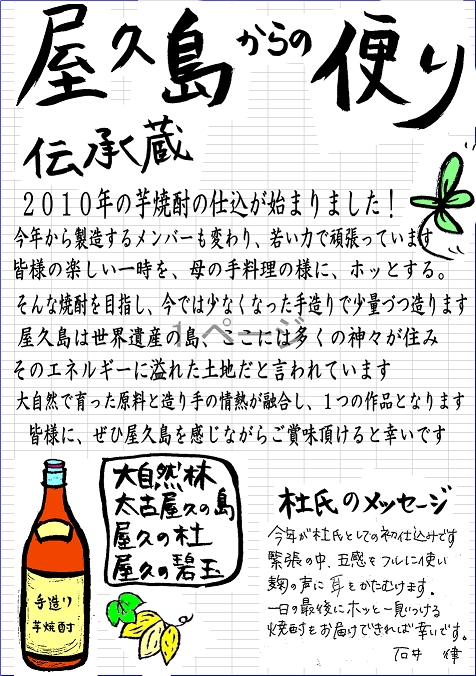 屋久島からの便り
伝承蔵
２０１０年の芋焼酎の仕込が始まりました！
今年から製造するメンバーも変わり、若い力で頑張っています
皆様の楽しい一時を、母の手料理の様に、ホッとする。
そんな焼酎を目指し、今では少なくなった手造りで少量づつ造ります
屋久島は世界遺産の島、ここには多くの神々が住み
そのエネルギーに溢れた土地だと言われています
大自然で育った原料と造り手の情熱が融合し、１つの作品となります
皆様に、ぜひ屋久島を感じながらご賞味頂けると幸いです
1 ページ
大自然林
太古屋久の島
屋久の杜
屋久の碧玉
手造り
芋焼酎
杜氏のメッセージ
今年が杜氏としての初仕込みです
緊張の中、五感をフルに使い
麹の声に耳をかたむけます。
一日の最後にホッと一息つける
焼酎をお届けできれば幸いです。
石井 律